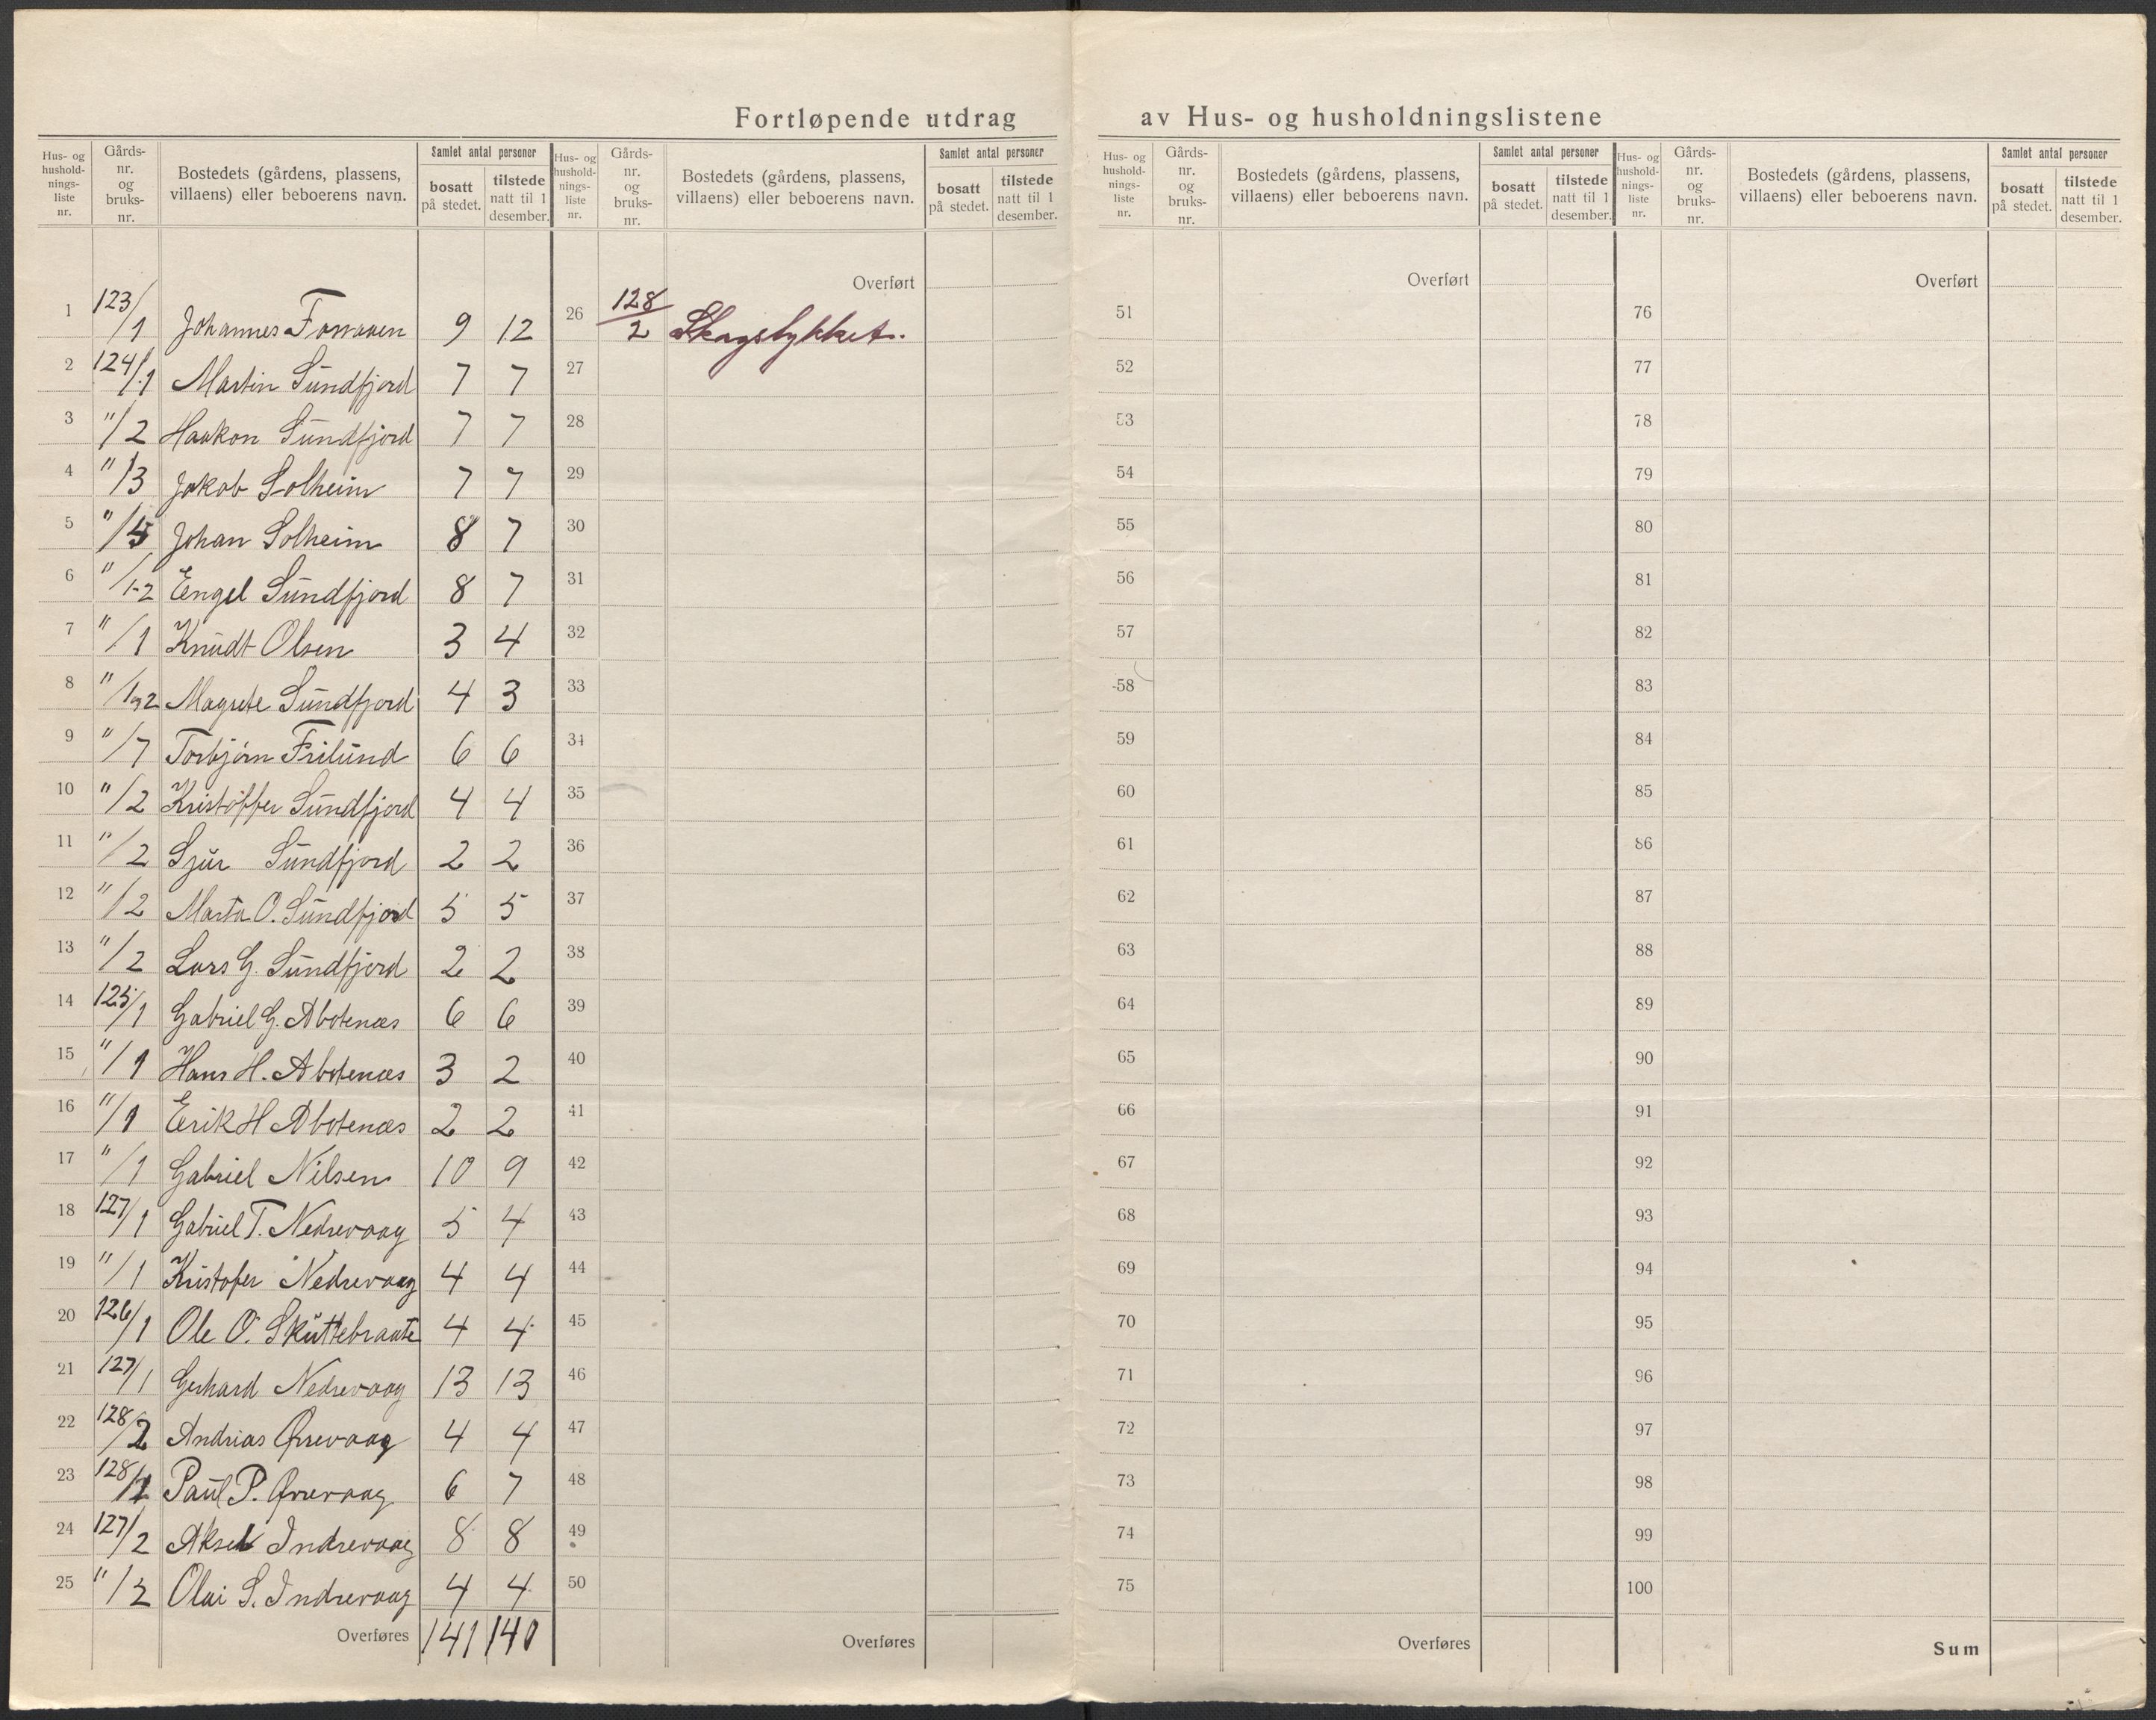 Fortløpende utdrag av Hus- og husholdningslistene
Hus- og hushold-nings-liste nr. Gårds-nr. og bruks-nr. Bostedets (gårdens, plassens, villaens) eller beboerens navn. Samlet antal personer bosatt på stedet. tilstede natt til 1 desember.
Hus- og hushold-nings-liste nr. Gårds-nr. og bruks-nr. Bostedets (gårdens, plassens, villaens) eller beboerens navn. Samlet antal personer bosatt på stedet. tilstede natt til 1 desember.
Hus- og hushold-nings-liste nr. Gårds-nr. og bruks-nr. Bostedets (gårdens, plassens, villaens) eller beboerens navn. Samlet antal personer bosatt på stedet. tilstede natt til 1 desember.
Hus- og hushold-nings-liste nr. Gårds-nr. og bruks-nr. Bostedets (gårdens, plassens, villaens) eller beboerens navn. Samlet antal personer bosatt på stedet. tilstede natt til 1 desember.
1 123/1 Johannes 9 12
2 124/1 Martin Sundfjord 7 7
3 "/2 Haakon Sundfjord 7 7
4 "/3 Jakob Solheim 7 7
5 "/5 Johan Solheim 8 7
6 "/1-2 Engel Sundfjord 8 7
7 "/1 Knudt Olsen 3 4
8 "/1 92 Magrete Sundfjord 4 3
9 "/7 Torbjørn Frilund 6 6
10 "/2 Kristoffer Sundfjord 4 4
11 "/2 Sjur Sundfjord 2 2
12 "/2 Marta O. Sundfjord 5 5
13 "/2 Lars G. Sundfjord 2 2
14 125/1 Gabriel G. Abotenæs 6 6
15 "/1 Hans H. Abotenæs 3 2
16 "/1 Erik H Abotenæs 2 2
17 "/1 Gabriel Nilsen 10 9
18 127/1 Gabriel T. Nedrevaag 5 4
19 "/1 Kristofer Nedrevaag 4 4
20 126/1 Ole O. Skuttebraate 4 4
21 127/1 Gerhard Nedrevaag 13 13
22 128/2 Andrias Øvrevaag 4 4
23 128/1 Paul P. Øvrevaag 6 7
24 127/2 Aksel Indrevaag 8 8
25 "/2 Olai S. Indrevaag 4 4
Overføres 141 140
Overført
26 128/2 Skogstykket.
27
28
29
30
31
32
33
34
35
36
37
38
39
40
41
42
43
44
45
46
47
48
49
50
Overføres
Overført
51
52
53
54
55
56
57
58
59
60
61
62
63
64
65
66
67
68
69
70
71
72
73
74
75
Overføres
Overført
76
77
78
79
80
81
82
83
84
85
86
87
88
89
90
91
92
93
94
95
96
97
98
99
100
Sum